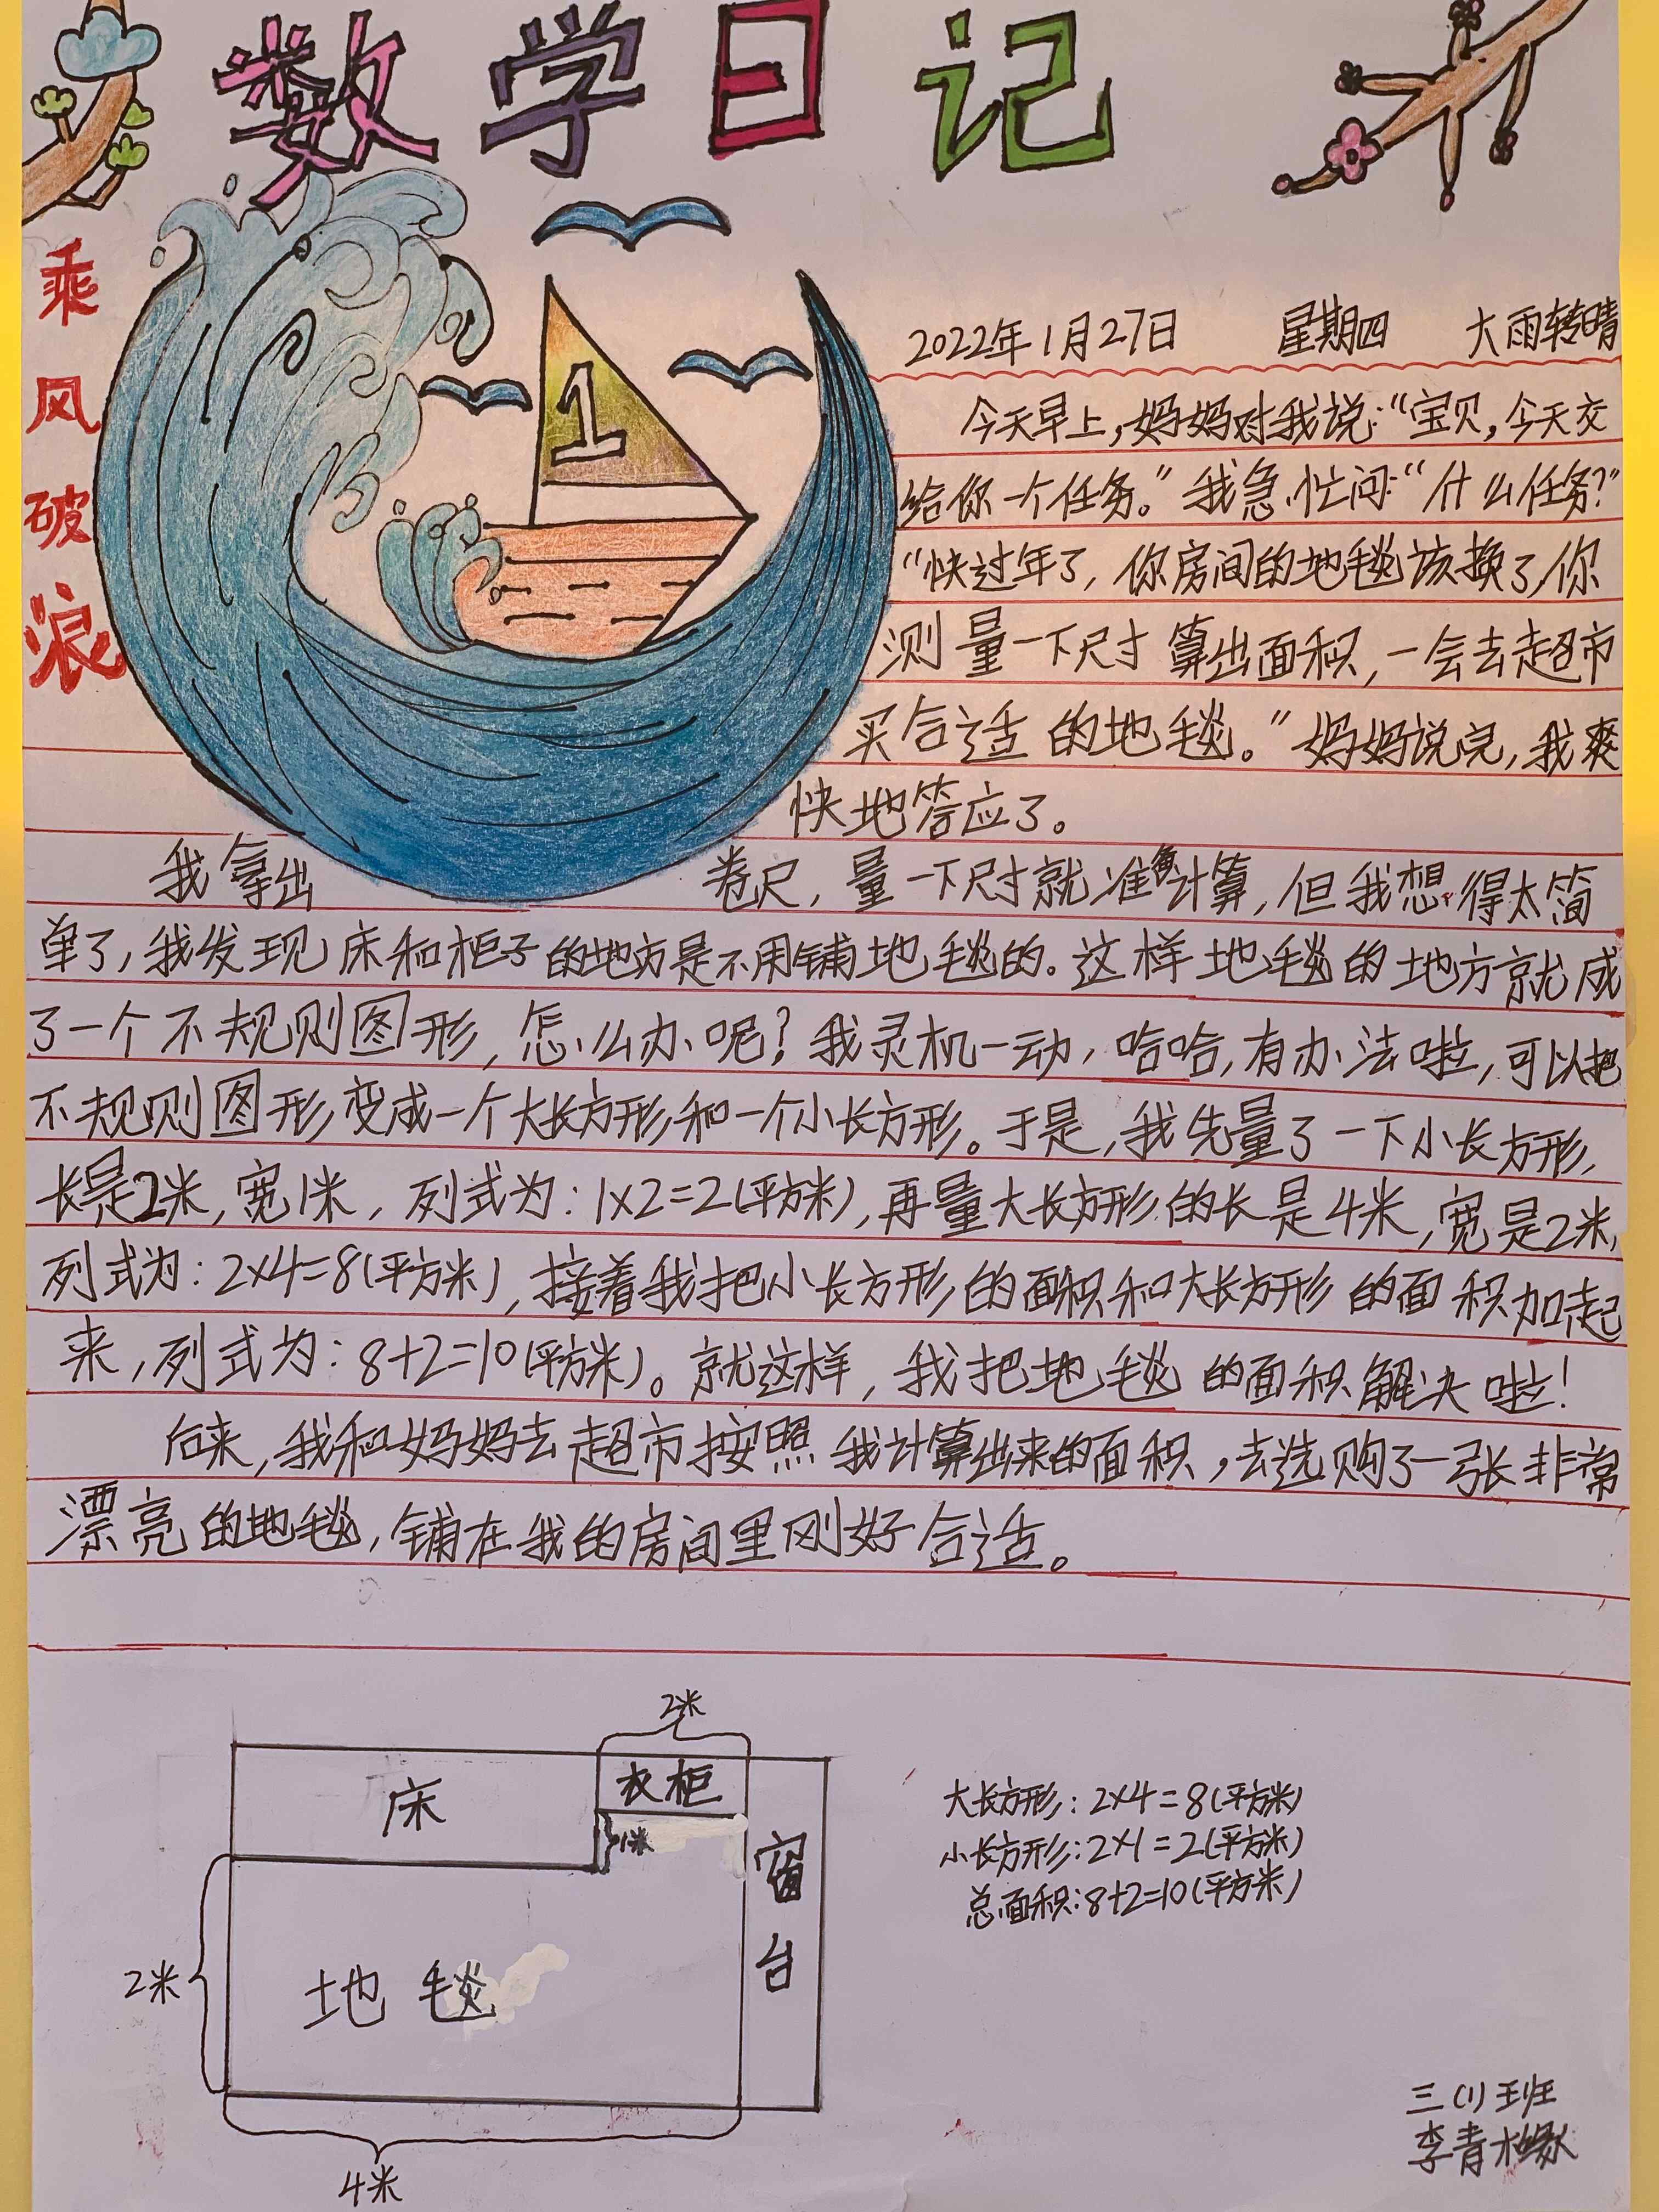 数学日记
乘风破浪
1
2022年1月27日 星期四 大雨转晴
今天早上,妈妈对我说:“宝贝,今天交
给你一个任务。”我急忙问:“什么任务?”
“快过年了,你房间的地毯该换了,你
测量一下尺寸算出面积,一会去超市
买合适的地毯。”妈妈说完,我爽
快地答应了。
我拿出卷尺,量一下尺寸就准备计算,但我想得太简
单了,我发现床和柜子的地方是不用铺地毯的。这样地毯的地方就成
了一个不规则图形,怎么办呢?我灵机一动,哈哈,有办法啦,可以把
不规则图形变成一个大长方形和一个小长方形。于是,我先量了一下小长方形,
长是2米,宽1米,列式为:1×2=2(平方米),再量大长方形的长是4米,宽是2米,
列式为:2×4=8(平方米),接着我把小长方形的面积和大长方形的面积加起
来,列式为:8+2=10(平方米)。就这样,我把地毯的面积解决啦!
后来,我和妈妈去超市按照我计算出来的面积,去选购了一张非常
漂亮的地毯,铺在我的房间里刚好合适。
2米
床
衣柜
1米
窗台
2米
地毯
4米
大长方形:2×4=8(平方米)
小长方形:2×1=2(平方米)
总面积:8+2=10(平方米)
三(1)班
李青